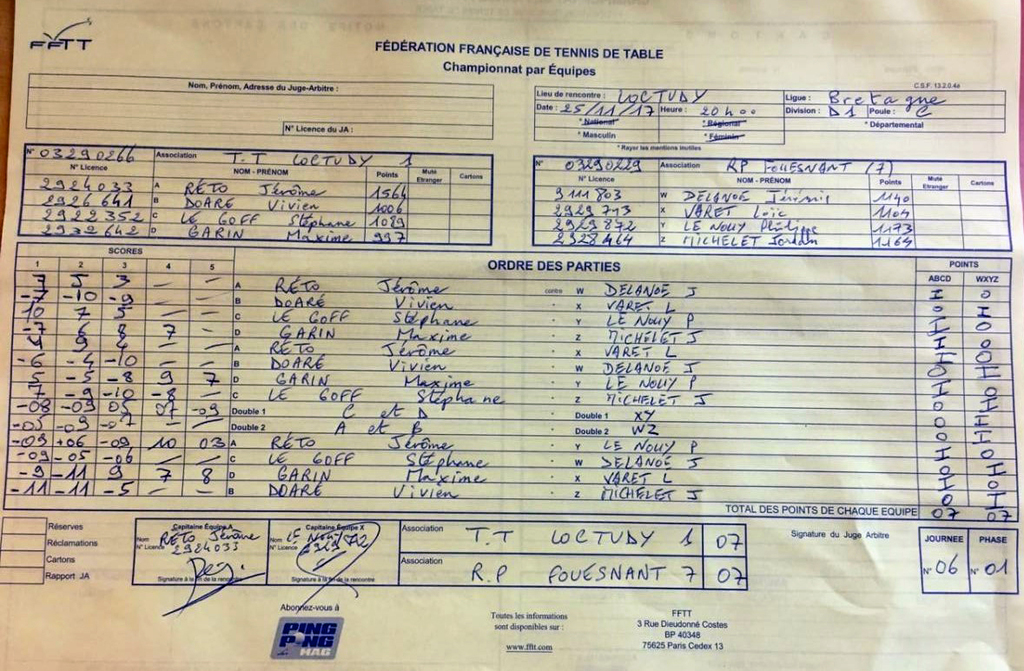 FFTT
FÉDÉRATION FRANÇAISE DE TENNIS DE TABLE
Championnat par Équipes
C.S.F. 13.2.0.4e
Nom, Prénom, Adresse du Juge-Arbitre :
N° Licence du JA :
Lieu de rencontre : LOCTUDY
Ligue : Bretagne
Date : 25/11/17 Heure : 20h00
Division : D1 Poule : C
* National * Régional * Départemental
* Masculin * Féminin
* Rayer les mentions inutiles
N° 03290266 Association T.T LOCTUDY 1
N° Licence NOM - PRÉNOM Points Muté Etranger Cartons
2924033 A RÉTO Jérôme 1564
2926641 B DOARÉ Vivien 1006
2922352 C LE GOFF Stéphane 1089
2932642 D GARIN Maxime 997
N° 03290229 Association RP FOUESNANT (7)
N° Licence NOM - PRÉNOM Points Muté Etranger Cartons
9111803 W DELANOE Jérémis 1140
2929713 X VARET Loïc 1104
2929872 Y LE NOUY Philippe 1173
2928464 Z MICHELET Jordan 1164
SCORES ORDRE DES PARTIES POINTS
1 2 3 4 5 ABCD WXYZ
7 5 3 — — A RÉTO Jérôme contre W DELANOE J 1 0
-7 -10 -9 — — B DOARÉ Vivien X VARET L
10 7 5 — — C LE GOFF Stéphane Y LE NOUY P
-7 6 8 7 - D GARIN Maxime Z MICHELET J
9 4 — — A RÉTO Jérôme X VARET L
-6 -4 -10 — — B DOARÉ Vivien W DELANOE J
5 -5 -8 9 7 D GARIN Maxime Y LE NOUY P
7 -9 -10 -8 — C LE GOFF Stéphane Z MICHELET J
-08 -03 05 07 -09 Double 1 C et D Double 1 XY
-05 -09 -07 — — Double 2 A et B Double 2 WZ
-09 +06 -09 10 03 A RÉTO Jérôme Y LE NOUY P
-09 -05 -06 — — C LE GOFF Stéphane W DELANOE J
-9 -11 9 7 8 D GARIN Maxime X VARET L
-11 -11 -5 — — B DOARÉ Vivien Z MICHELET J
TOTAL DES POINTS DE CHAQUE EQUIPE 07 07
Réserves
Réclamations
Cartons
Rapport JA
Capitaine Équipe A
Nom RÉTO Jérôme
N° Licence 2924033
Signature à la fin de la rencontre
Capitaine Équipe X
Nom LE NOUY
N° Licence
Signature à la fin de la rencontre
Association T.T LOCTUDY 1 07
Association R.P FOUESNANT 7 07
Signature du Juge Arbitre
JOURNEE PHASE
N° 06 N° 01
Abonnez-vous à
PING PONG MAG
Toutes les informations
sont disponibles sur :
www.fftt.com
FFTT
3 Rue Dieudonné Costes
BP 40348
75625 Paris Cedex 13